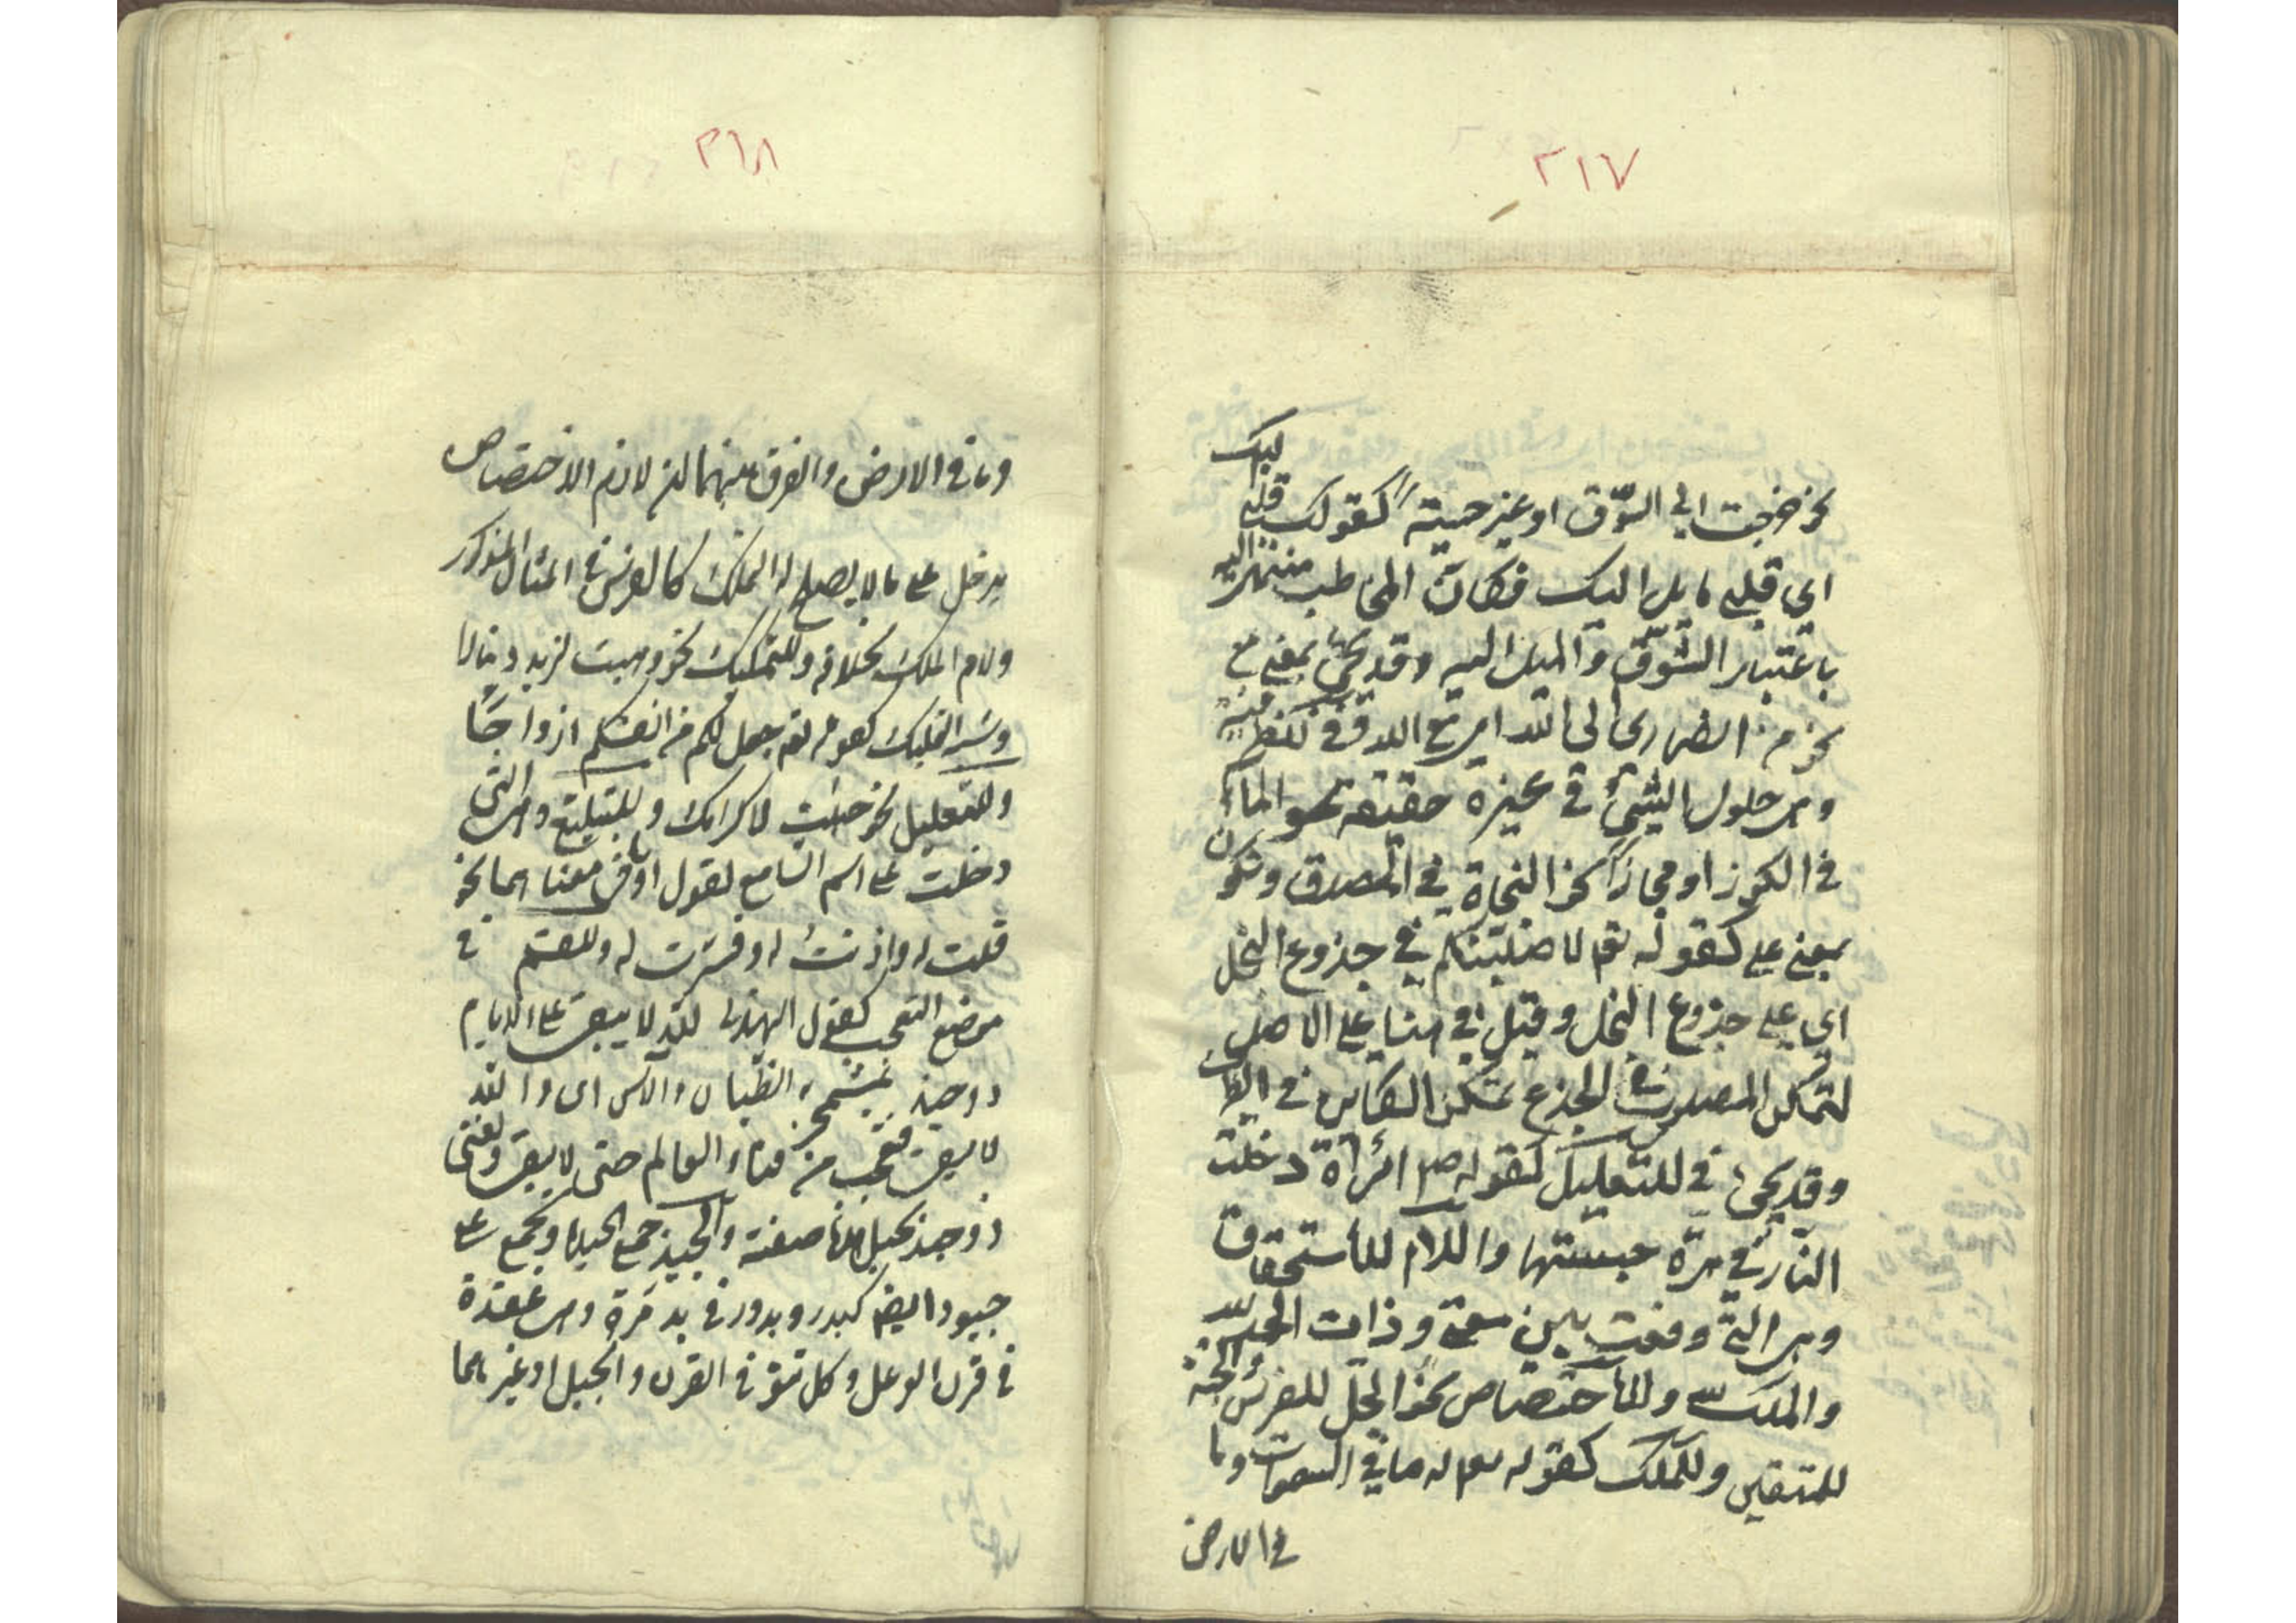 ٢١٧
نحو خرجت الى السّوق او غير حسيّة كقولك قلبي اليك
اي قلبي مايل اليك فكان المخاطب منتهى اليه
باعتبار الشّوق والميل اليه وقد يجئ بمعنى مع
نحو من انصاري الى الله اي مع الله وفي للظرفية
وهي حلول الشئ في غيره حقيقة نحو الماء
في الكوز او مجازا نحو النجاة في الصدق وتكون
بمعنى على كقوله تعم لاصلبنكم في جذوع النخل
اي على جذوع النخل وقيل في هنا على الاصل
لتمكن المصلوب في الجذع تمكن الكاين في الظرف
وقد يجئ في للتعليل كقوله ص امرأة دخلت
النّار في هرّة حبستها واللام للاستحقاق
وهي التي وقعت بين معنى وذات الحمد لله
والملك لله وللاختصاص نحو الجلّ للفرس الجنة
للمتقين وللملك كقوله تعم له ما في السموات وما
في الارض
٢١٨
وما في الارض والفرق بينهما ان لام الاختصاص
يدخل على ما لا يصلح له الملك كالفرس في المثال المذكور
ولام الملك بخلافه وللتمليك نحو وهبت لزيد دينارا
وشبه التمليك كقوله تعم جعل لكم من انفسكم ازواجًا
وللتعليل نحو جئت لاكرامك وللتبليغ وهي التي
دخلت على اسم السامع لقول او ما في معناهما نحو
قلت له واذنت له وفسّرت له وللقسم في
موضع التعجب كقول الهذلي لله لا يبقى على الايام
ذو حيد بمشمخر به الظيان والآس اى والله
لا يبقى فتعجب من فناء العالم حتى لا يبقى ولفنى
ذو حيد بجبل هذا صفته والحيد جمع الحيد ويجمع على
حيود ايضا كبدر وبدور في بدرة وهي عقدة
في قرن الوعل وكل نتو في القرن والجبل او غيرهما